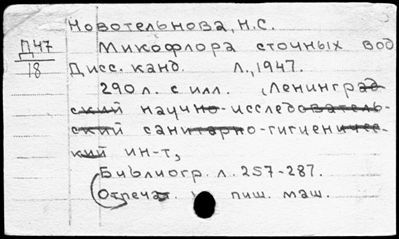 Новотельнова, Н.С.
Д47
18
Микофлора сточных вод
Дисс. канд. Л., 1947.
290 л. с илл. (Ленинград
ский научно-исследователь-
ский санитарно-гигиеничес-
кий ин-т,
Библиогр. л. 257-287.
(Отпечат. пиш. маш.